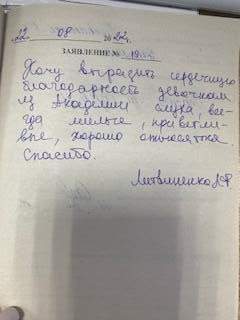 22 08 2022 г.
ЗАЯВЛЕНИЕ № 19
Хочу выразить сердечную
благодарность девочкам
из Академии слуха, все-
гда милые, приветли-
вые, хорошо относятся.
Спасибо.
Литвиненко